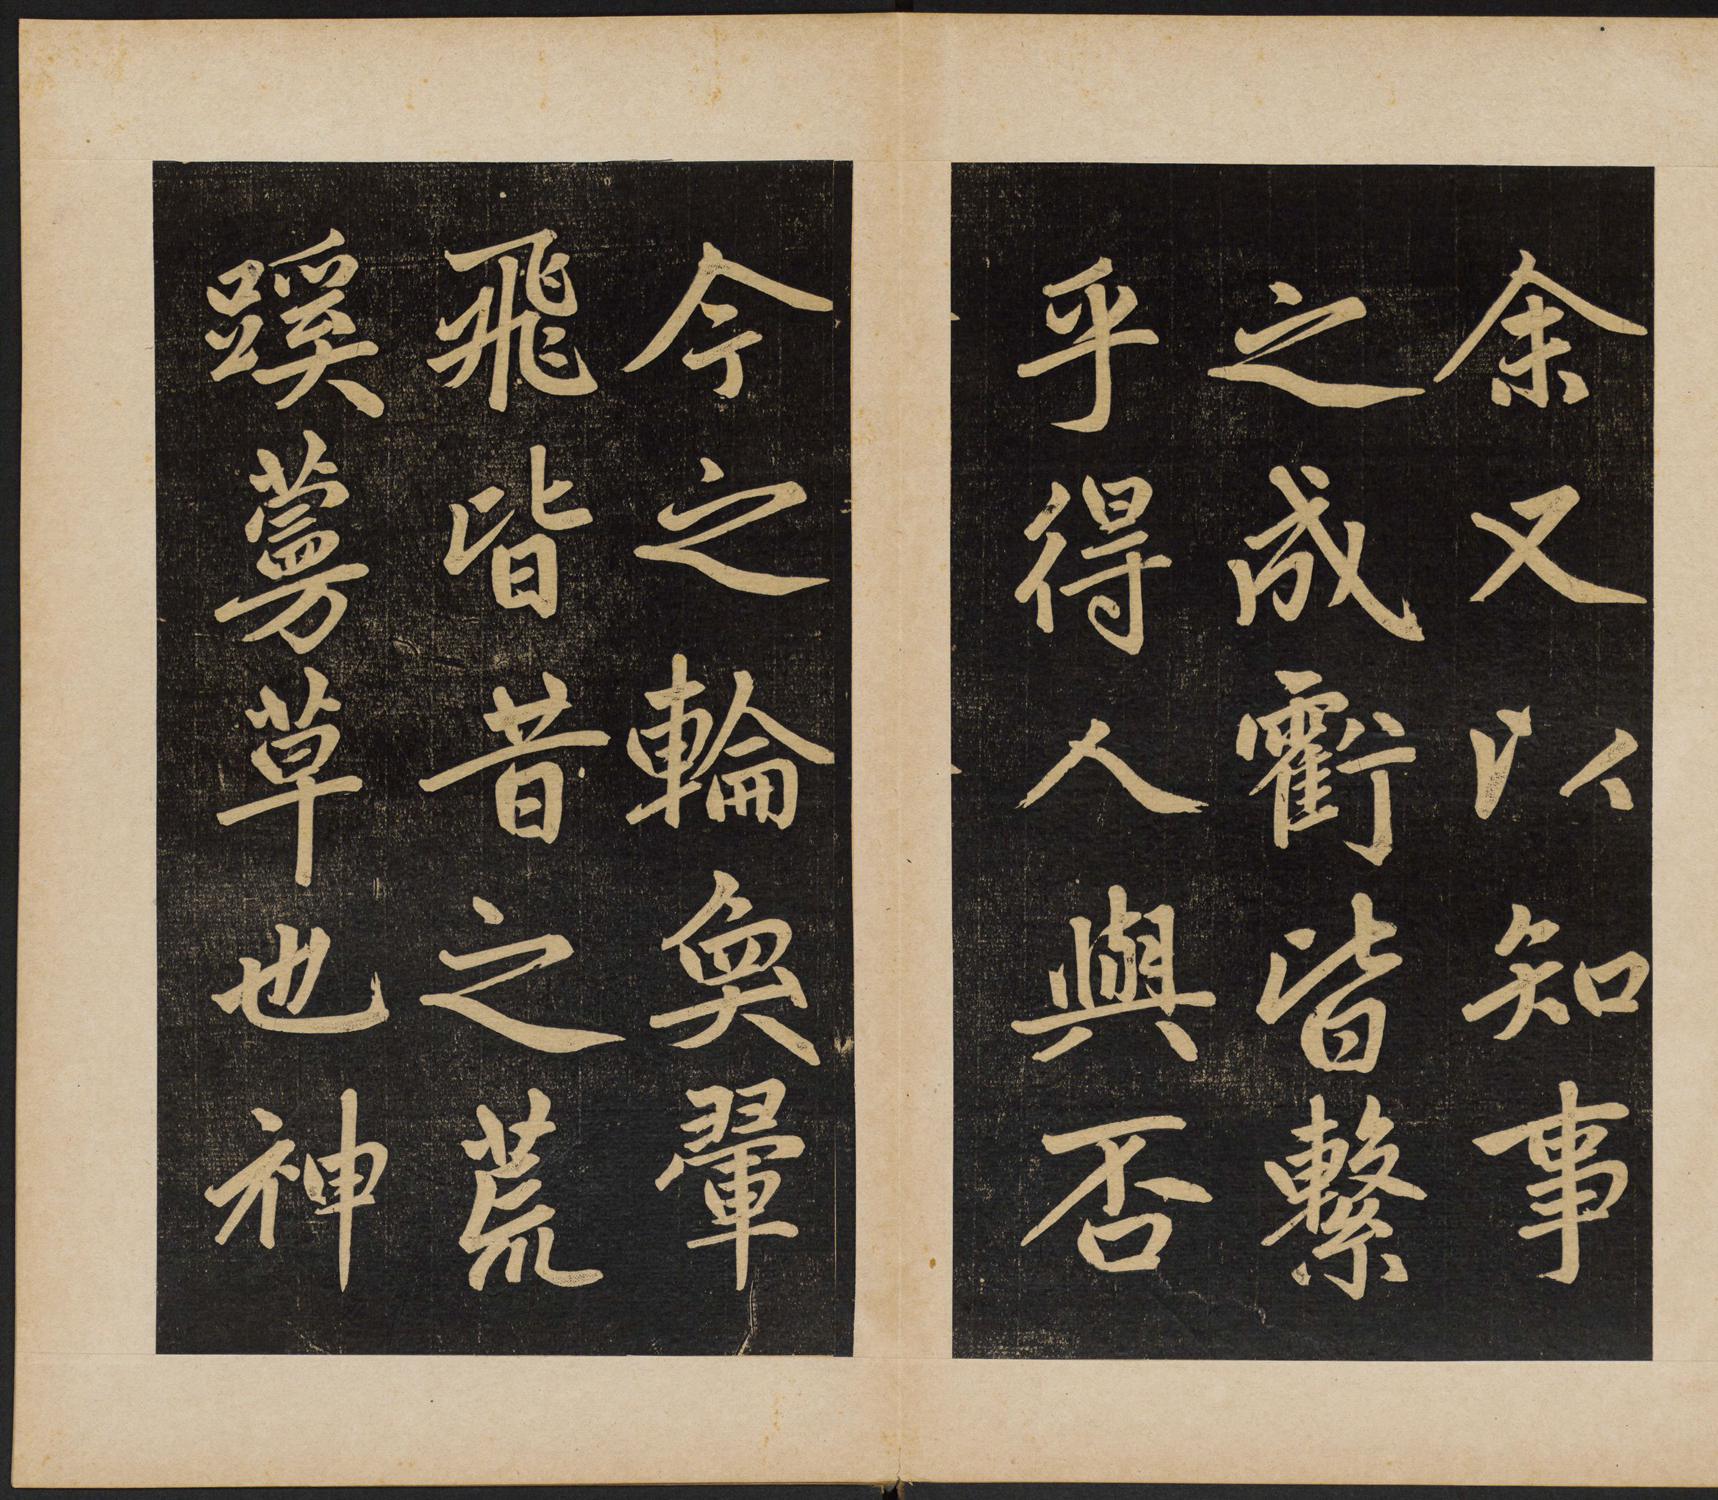 余又以知事
之成虧皆繫
乎得人與否
今之輪奐翬
飛皆昔之荒
蹊蔓草也神